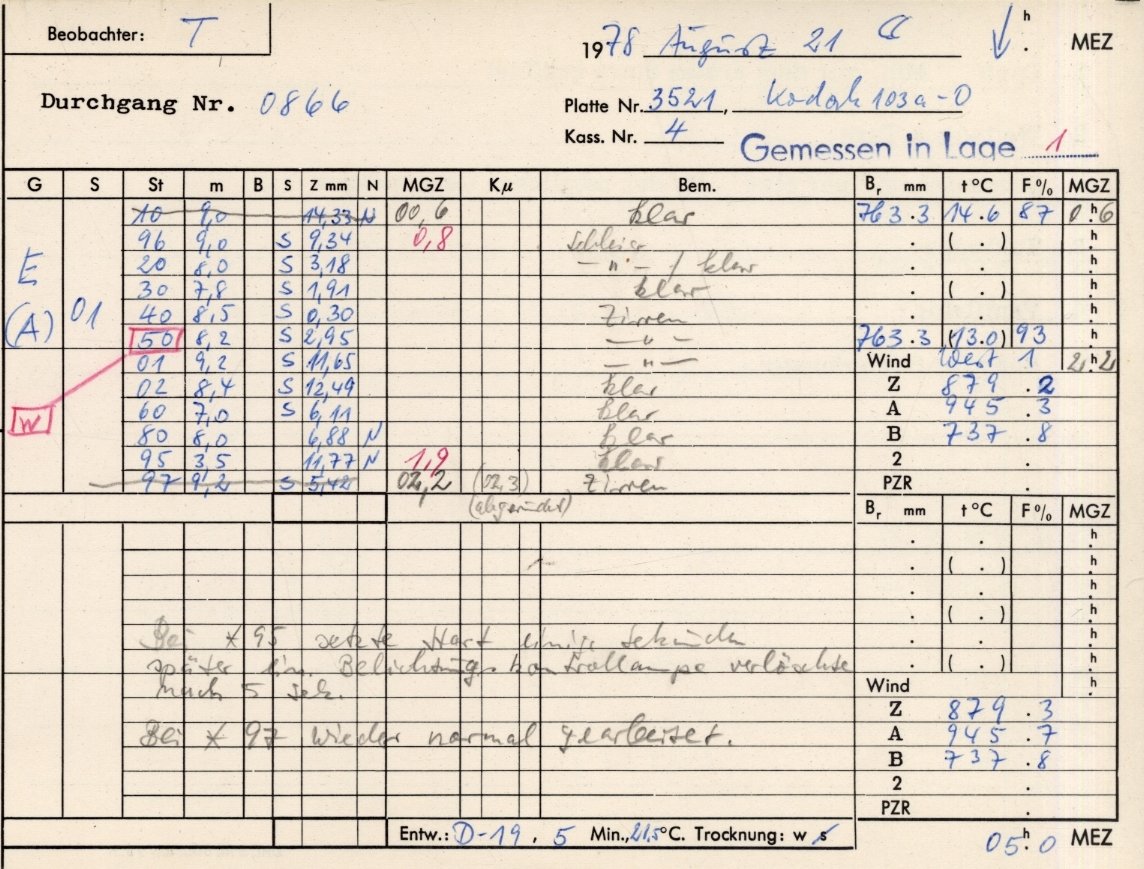 Beobachter: T
1978 August 21 h . MEZ
Durchgang Nr. 0866
Platte Nr. 3521, Kodak 103a-O
Kass. Nr. 4 Gemessen in Lage 1
G S St m B S Z mm N MGZ Kµ Bem. Br mm t °C F % MGZ
10 9,0 14,33 N 00,6 klar 763.3 14.6 87 0h.6
96 9,0 S 9,34 0,8 Schleier . ( . ) h.
E 20 8,0 S 3,18 — " — / klar . . h.
30 7,8 S 1,91 klar . ( . ) h.
(A) 01 40 8,5 S 0,30 Zirren . . h.
50 8,2 S 2,95 — " — 763.3 (13.0) 93 h.
01 9,2 S 11,65 — " — Wind West 1 2h.2
02 8,4 S 12,49 klar Z 879.2
w 60 7,0 S 6,11 klar A 945.3
80 8,0 6,88 N klar B 737.8
95 3,5 11,77 N 1,9 klar 2 .
97 9,2 S 5,42 02,2 (02,3) Zirren PZR .
(abgerundet)
Br mm t °C F % MGZ
. . h.
. ( . ) h.
. . h.
. ( . ) h.
Bei * 95 setzte Start einige Sekunden . . h.
später ein. Belichtungskontrollampe verlöschte . ( . ) h.
nach 5 sek. Wind h.
Z 879.3
Bei * 97 wieder normal gearbeitet. A 945.7
B 737.8
2 .
PZR .
Entw.: D-19, 5 Min., 21,5 °C. Trocknung: w s 05h.0 MEZ